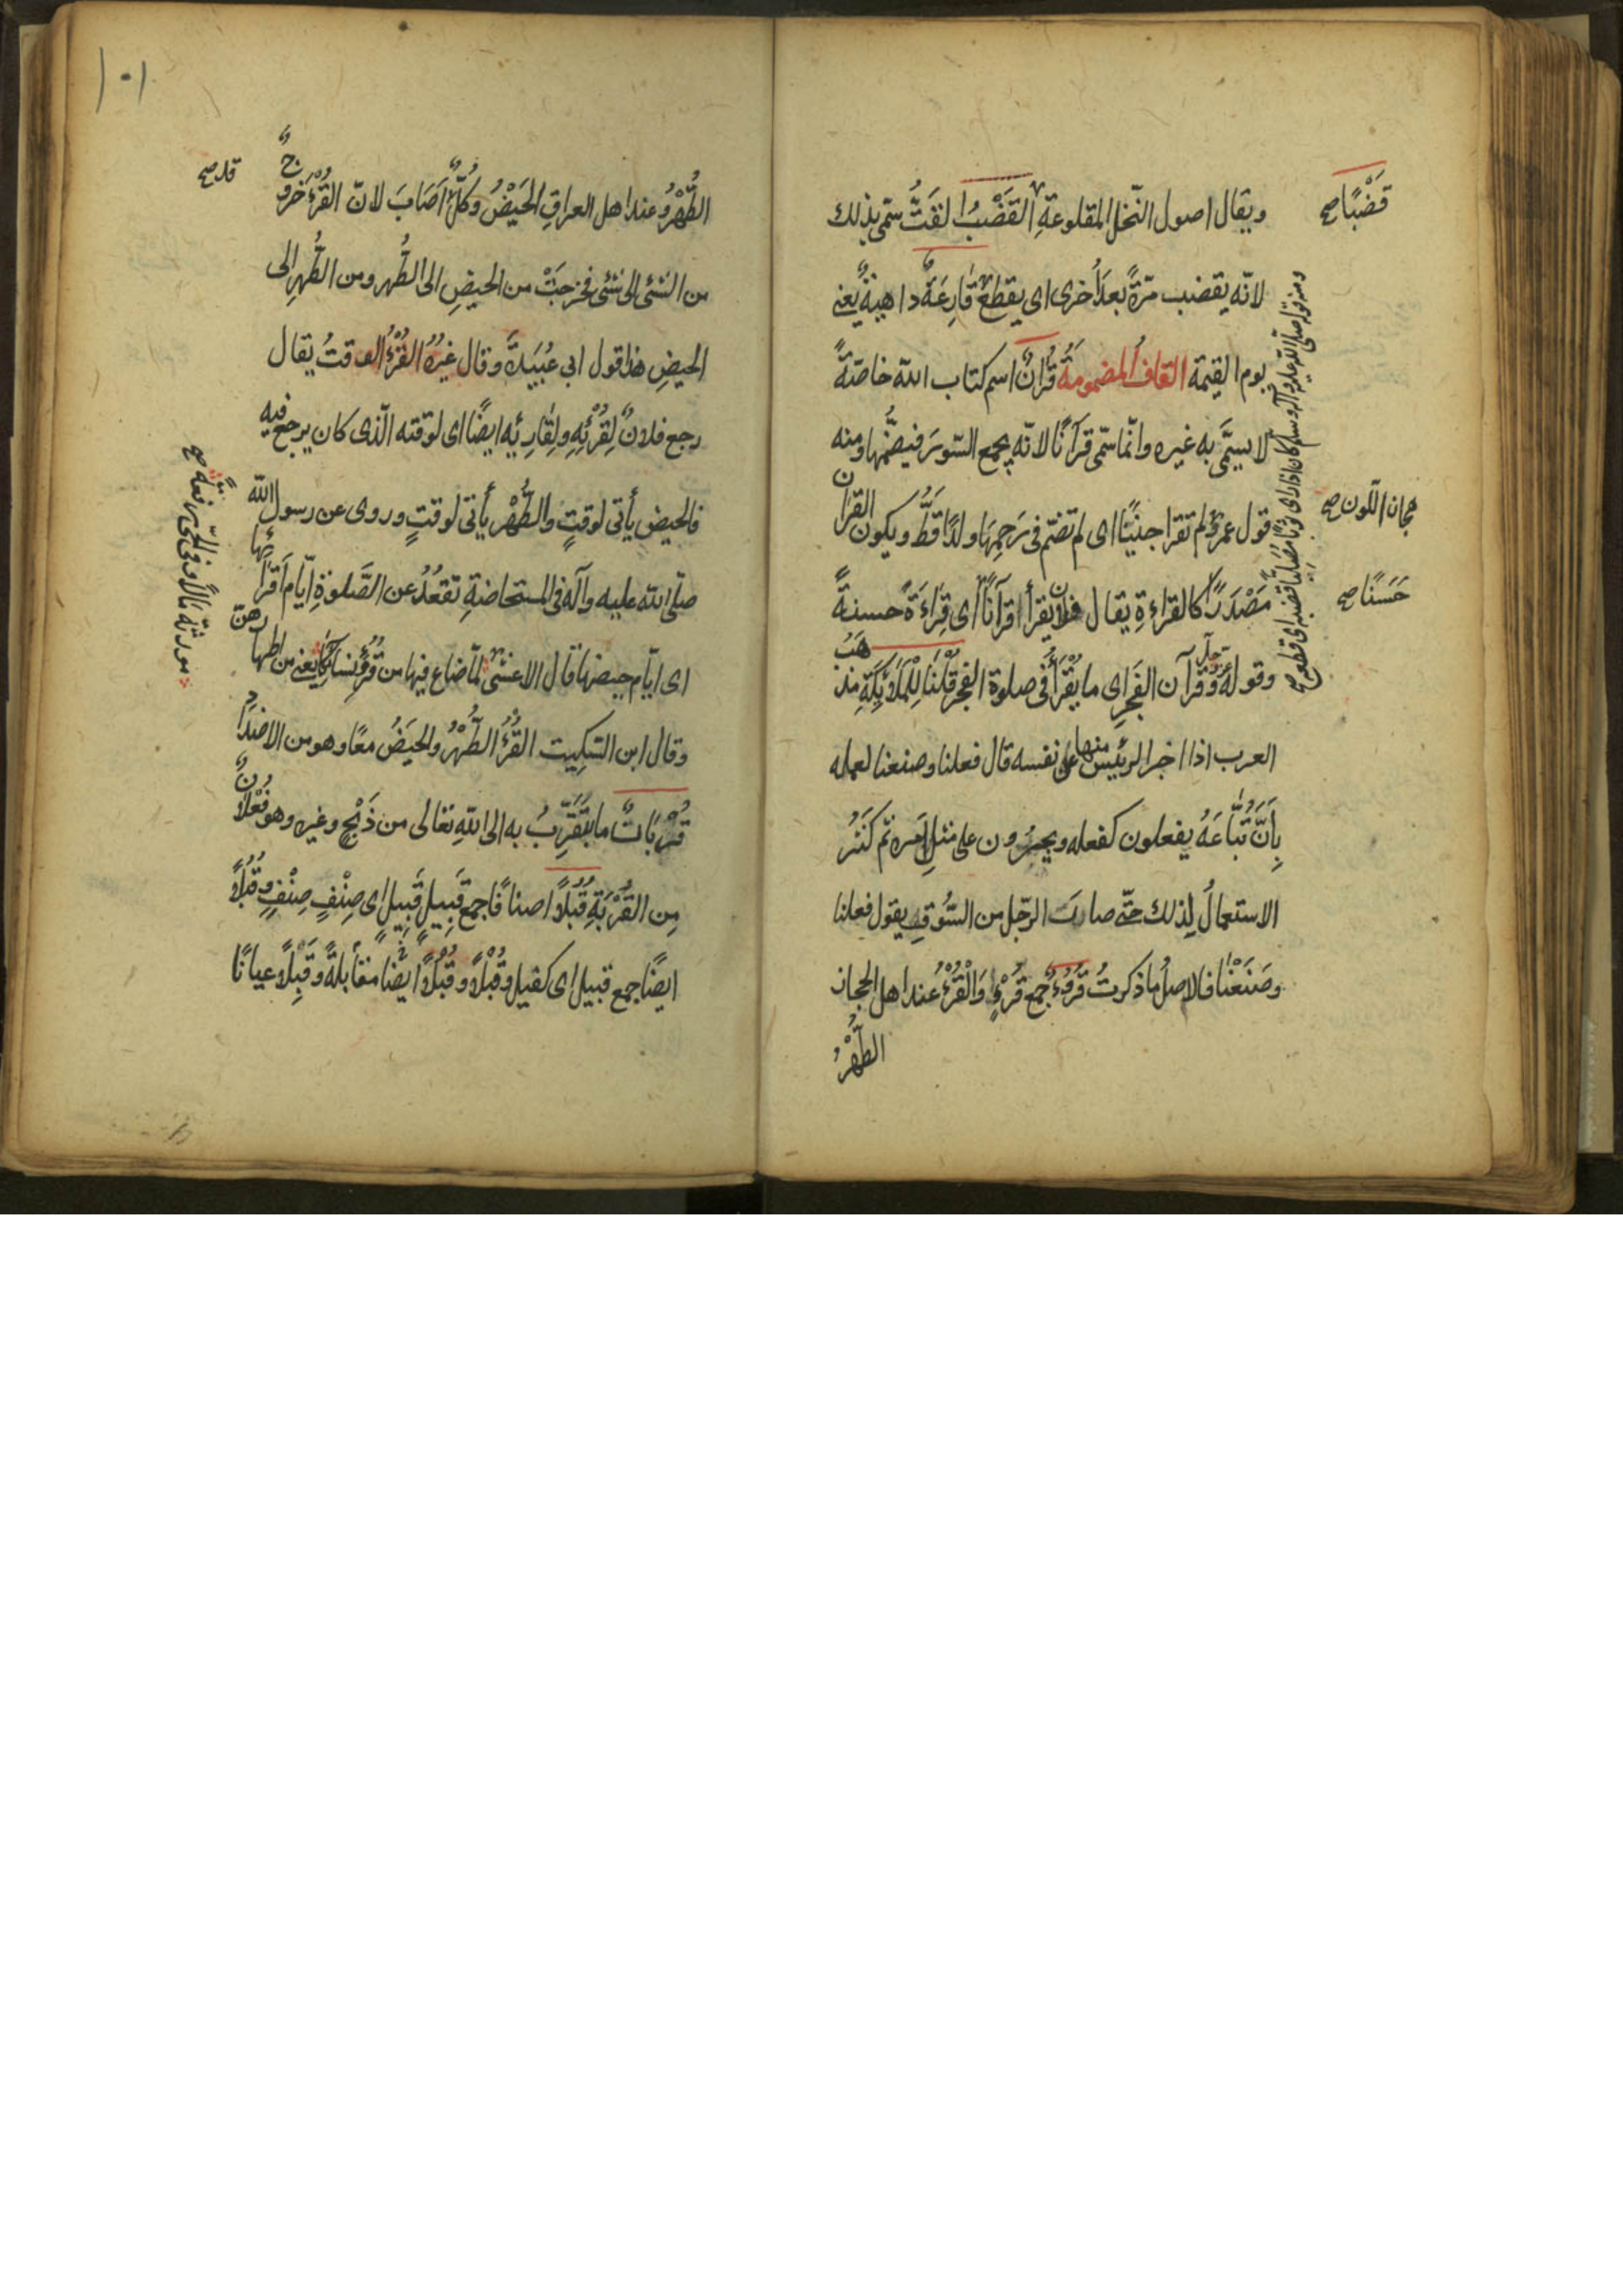 ويقال اصول النّخل المقلوعةِ القَضْبُ القَتُّ سمّى بذلك
قَضْبًا صح
لانّه يقضب مرّةً بعد أُخرى اى يقطع قَارِعَةٌ داهيةٌ يعنى
يوم القيٰمة القاف المضمومة قُرْانٌ اسم كتاب الله خاصّةً
لا يسمَّى به غيره وانّما سمّى قرآنًا لانّه يجمع السّوَر فيضمُّها ومنه
قول عمرٍو لم تقرا جنينًا اى لم تضمّ فى رَحِمِهَا ولدًا قَطُّ ويكون القران
هجان اللّون صح
مَصْدَرًا كالقراءةِ يقال فلانٌ يقرأ قرآنًا اى قِرَاءَةً حسنةً
حَسَنًا صح
وقوله وقرآن الفَجرِ اى ما يُقْرَأُ فى صلوة الفجر قُلْنَا لِلْمَلٰئِكَةِ مذهَبُ
العرب اذا اخبر الرئيس منها عن نفسه قال فعلنا وصنعنا لعلمه
بِأَنَّ تُبَّاعَهُ يفعلون كفعله ويجرون على مثل امره ثم كَثُرَ
الاستعمالُ لِذلك حتّى صار الرّجل من السُّوقة يقول فعلنا
وصَنَعْنَا فالاصلُ ما ذكرتُ قُرُوْءٌ جمع قُرْءٍ وَالْقُرْءُ عند اهل الحجاز
الطُّهْرُ
ومنه قوله صلّى الله عليه وآله وسلم كان اذا راى ثوبًا مصلّبًا قضبه اى قطعه صح
١٠١
الطُّهْرُ وعند اهل العراقِ الحَيْضُ وَكُلٌّ اَصَابَ لانّ القُرْءَ خروجٌ
قد صح
من الشئ الى شئ فخرجَتْ من الحيضِ الى الطُّهر ومن الطُّهرِ الى
الحيضِ هذا قول ابى عُبَيْدَةَ وقال غيرُهُ القُرْءُ الوقتُ يقال
رجع فلانٌ لِقُرْئِهِ ولِقَارِئِه ايضًا اى لوقته الّذى كان يرجع فيه
فالحيض يأتى لوقتٍ والطُّهْر يأتى لوقتٍ وروى عن رسول الله
صلّى الله عليه وآله فى المستحاضةِ تقعُدُ عن الصَّلوةِ ايّام اَقْرَائها
اى ايّام حيضها قال الاعشى لمّا ضاع فيها من قُرُوْءِ نِسَائِكَا يعنى من اطهارهنّ
وقال ابن السّكِيت القُرْءُ الطُّهْرُ والحَيْضُ معًا وهو من الاضداد
قُرْبَانٌ ما يُتَقَرَّبُ به الى اللهِ تعالى من ذَبْحٍ وغيره وهو فُعْلَانٌ
مِن القُرْبَةِ قُبُلًا اصنافًا جمع قَبِيلٍ قَبِيلٍ اى صِنْفٍ صِنْفٍ وقُبُلًا
ايضًا جمع قبيل اى كفيل وقُبُلًا وقُبْلًا ايضًا مقابلةً وقِبَلًا عيانًا
مورثة مالًا وفى الحىّ رفعةً صح